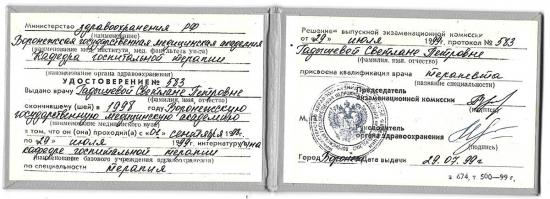 Министерство здравоохранения РФ
(наименование)
Воронежская государственная медицинская академия
(наименование мед. института, мед. факультета ун-та)
Кафедра госпитальной терапии
(наименование органа здравоохранения)
УДОСТОВЕРЕНИЕ № 583
Выдано врачу Гадышевой Светлане Петровне
(фамилия, имя, отчество)
окончившему (шей) в 1998 году Воронежскую
государственную медицинскую академию
(наименование медицинского вуза)
в том, что он (она) проходил(а) с «01» сентября
по «29» июля 1999г. интернатуру на
кафедре госпитальной терапии
(наименование базового учреждения здравоохранения)
по специальности терапия
Решение выпускной экзаменационной комиссии
от «29» июля 1999г. протокол № 583
Гадышевой Светлане Петровне
(фамилия, имя, отчество)
присвоена квалификация врача терапевта
(название специальности)
Председатель
экзаменационной комиссии
(подпись)
М.
Руководитель
органа здравоохранения
(подпись)
Город Воронеж дата выдачи 29.07.99г
з 674, т. 500—99 г.